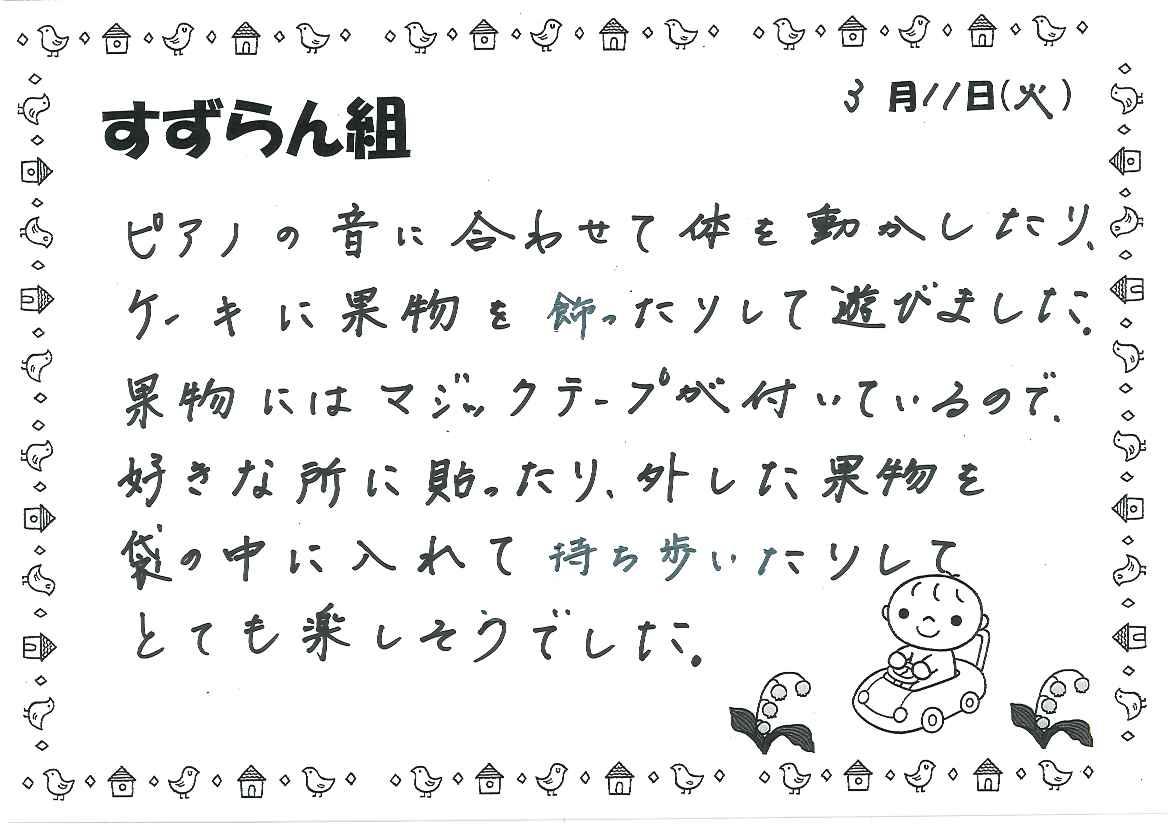 すずらん組
3月11日(火)
ピアノの音に合わせて体を動かしたり、
ケーキに果物を飾ったりして遊びました。
果物にはマジックテープが付いているので、
好きな所に貼ったり、外した果物を
袋の中に入れて持ち歩いたりして
とても楽しそうでした。